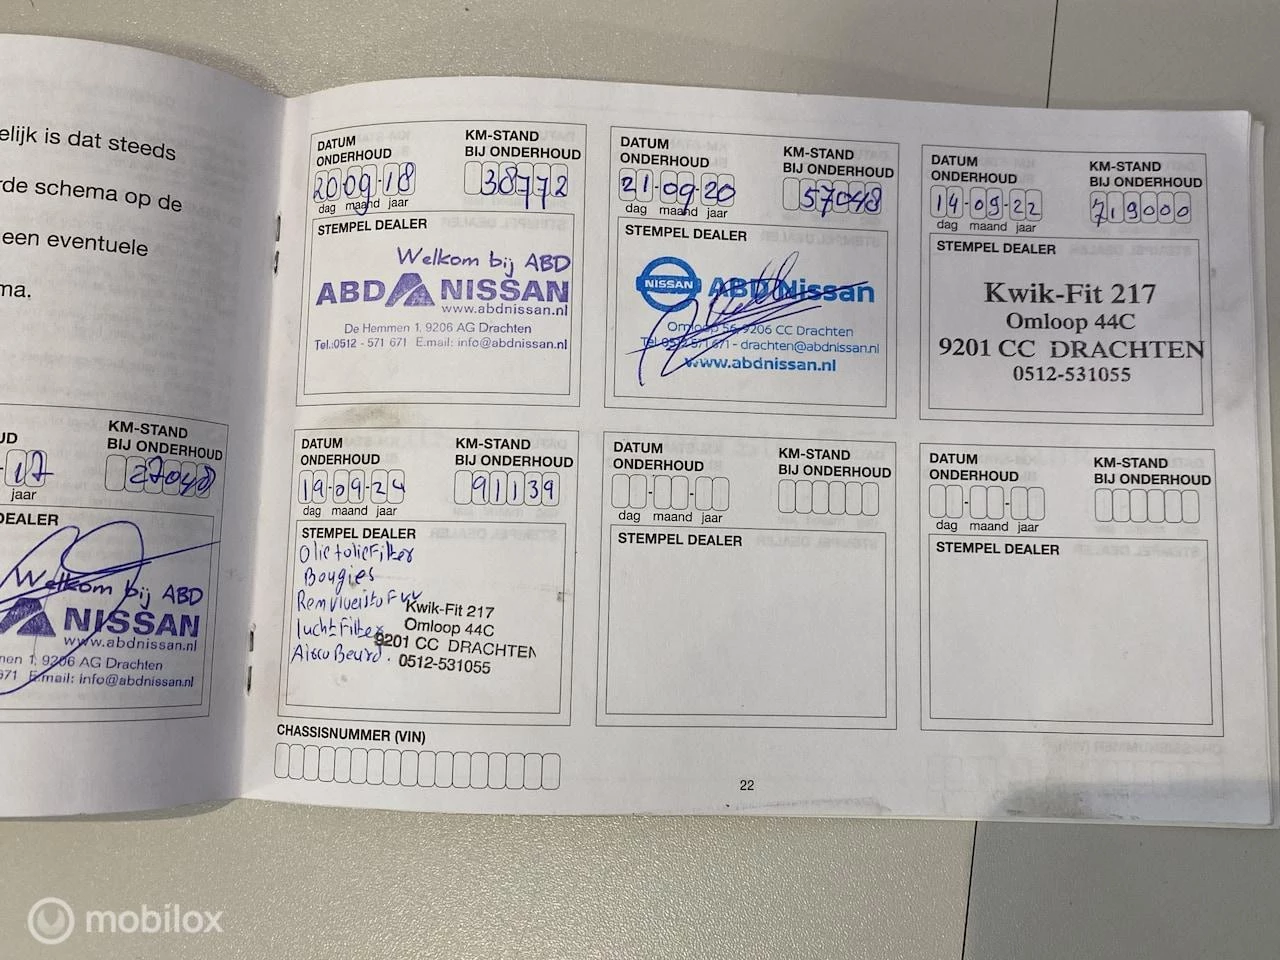 elijk is dat steeds
rde schema op de
een eventuele
ma.
UD
KM-STAND
BIJ ONDERHOUD
-17
27048
jaar
DEALER
Welkom bij ABD
NISSAN
www.abdnissan.nl
nen 1, 9206 AG Drachten
671 E.mail: info@abdnissan.nl
DATUM
ONDERHOUD
KM-STAND
BIJ ONDERHOUD
20-09-18
38772
dag maand jaar
STEMPEL DEALER
Welkom bij ABD
ABD NISSAN
www.abdnissan.nl
De Hemmen 1, 9206 AG Drachten
Tel.:0512 - 571 671 E.mail: info@abdnissan.nl
DATUM
ONDERHOUD
KM-STAND
BIJ ONDERHOUD
21-09-20
57048
dag maand jaar
STEMPEL DEALER
NISSAN
ABD Nissan
Omloop 56, 9206 CC Drachten
Tel. 0512 571 671 - drachten@abdnissan.nl
www.abdnissan.nl
DATUM
ONDERHOUD
KM-STAND
BIJ ONDERHOUD
14-09-22
719000
dag maand jaar
STEMPEL DEALER
Kwik-Fit 217
Omloop 44C
9201 CC DRACHTEN
0512-531055
DATUM
ONDERHOUD
KM-STAND
BIJ ONDERHOUD
19-09-24
91139
dag maand jaar
STEMPEL DEALER
Olie+olieFilter
Bougies
Remvloeistof
luchtFilter
Airco Beurd.
Kwik-Fit 217
Omloop 44C
9201 CC DRACHTEN
0512-531055
DATUM
ONDERHOUD
KM-STAND
BIJ ONDERHOUD
dag maand jaar
STEMPEL DEALER
DATUM
ONDERHOUD
KM-STAND
BIJ ONDERHOUD
dag maand jaar
STEMPEL DEALER
CHASSISNUMMER (VIN)
22
mobilox